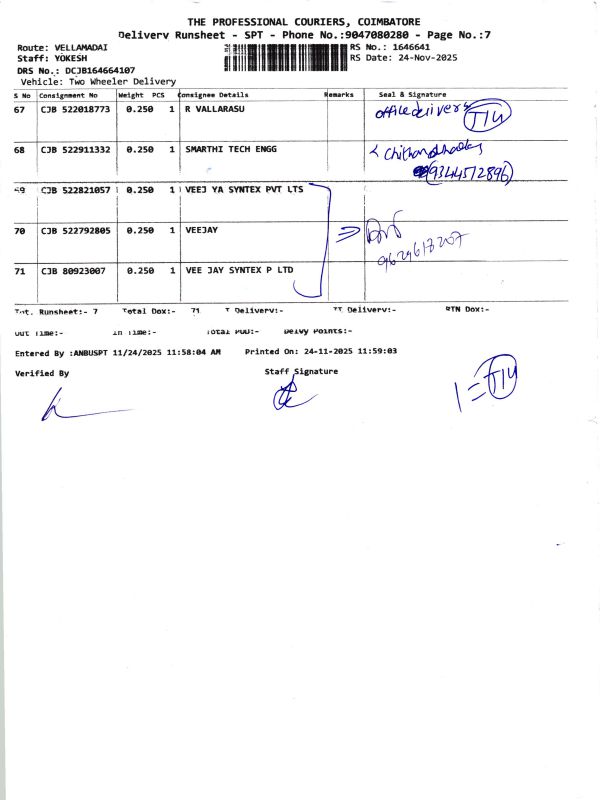 THE PROFESSIONAL COURIERS, COIMBATORE
Delivery Runsheet - SPT - Phone No.:9047080280 - Page No.:7
Route: VELLAMADAI
RS No.: 1646641
Staff: YOKESH
RS Date: 24-Nov-2025
DRS No.: DCJB164664107
Vehicle: Two Wheeler Delivery
S No Consignment No Weight PCS Consignee Details Remarks Seal & Signature
67 CJB 522018773 0.250 1 R VALLARASU office delivery T14
68 CJB 522911332 0.250 1 SMARTHI TECH ENGG
(9344572896)
69 CJB 522821057 0.250 1 VEEJ YA SYNTEX PVT LTS
70 CJB 522792805 0.250 1 VEEJAY
9629617207
71 CJB 80923007 0.250 1 VEE JAY SYNTEX P LTD
Tot. Runsheet:- 7 Total Dox:- 71 I Delivery:- II Delivery:- RTN Dox:-
Out Time:- In Time:- Total POD:- Delvy Points:-
Entered By :ANBUSPT 11/24/2025 11:58:04 AM Printed On: 24-11-2025 11:59:03
Verified By Staff Signature
1 = T14